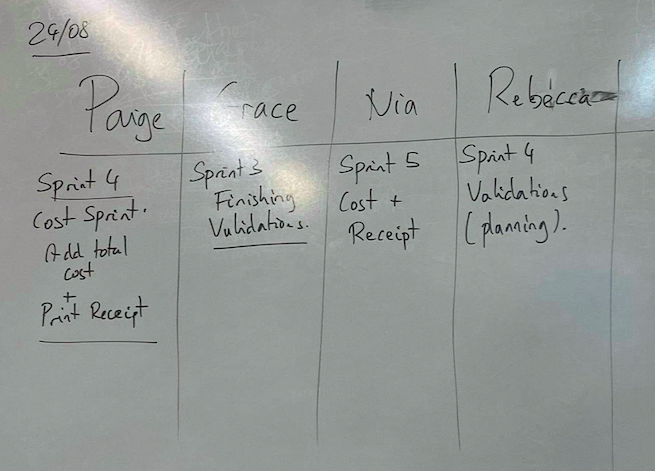 24/08
Paige
Grace
Nia
Rebecca
Sprint 4
Cost Sprint.
Add total
cost
+
Print Receipt
Sprint 3
Finishing
Vulidations.
Sprint 5
Cost +
Receipt
Sprint 4
Validations
(planning).